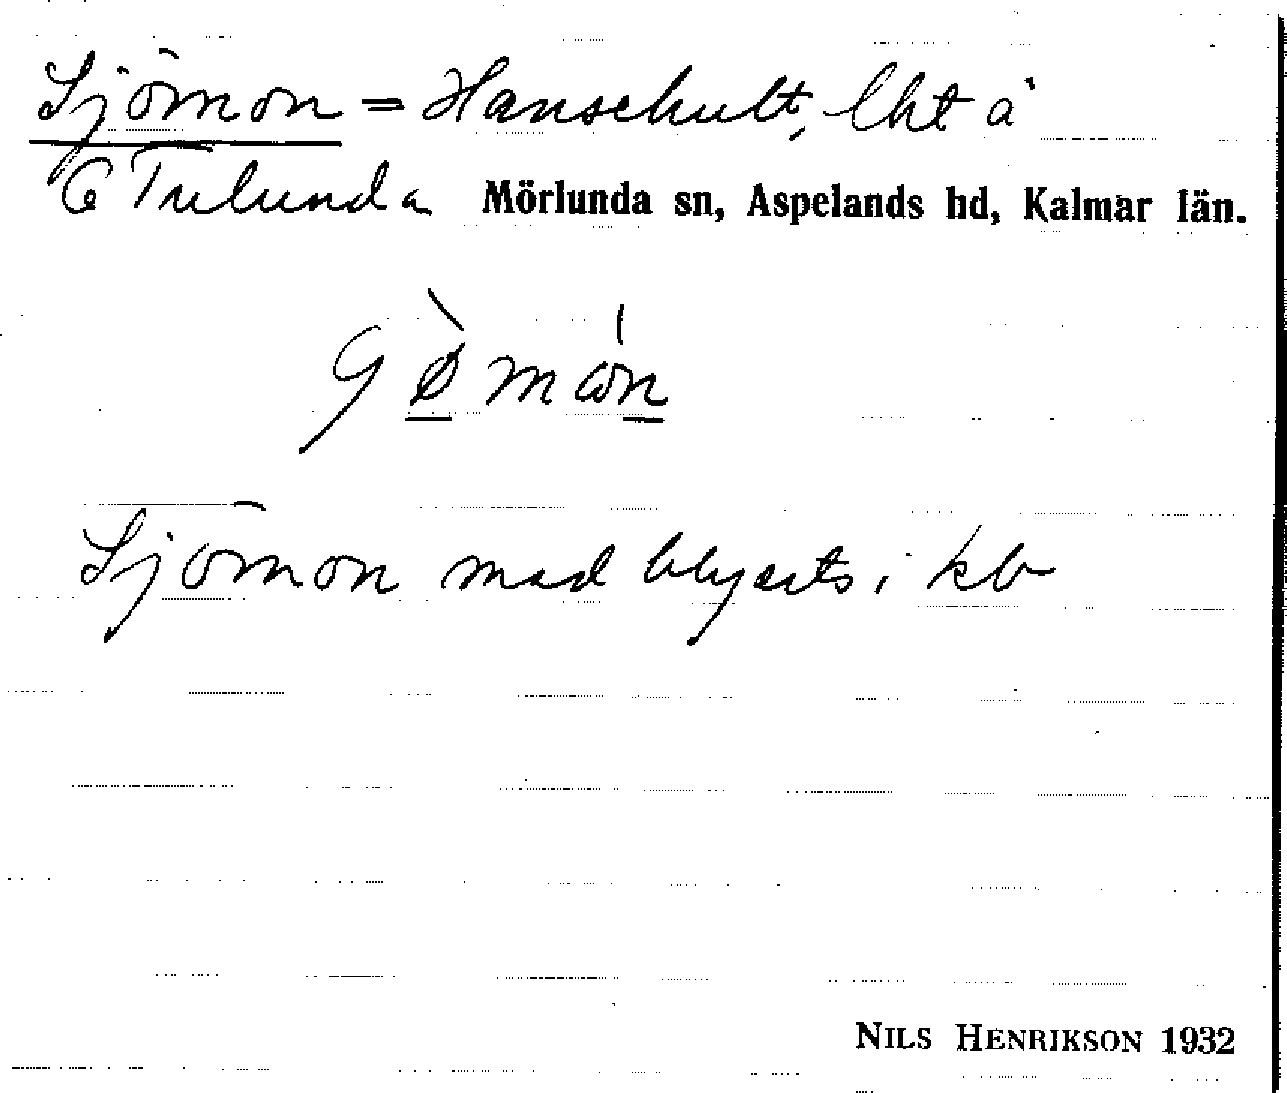 Sjömon = Hanschult, lht å
C Trulunda Mörlunda sn, Aspelands hd, Kalmar län.
Sjömon med blyerts i kb
NILS HENRIKSON 1932